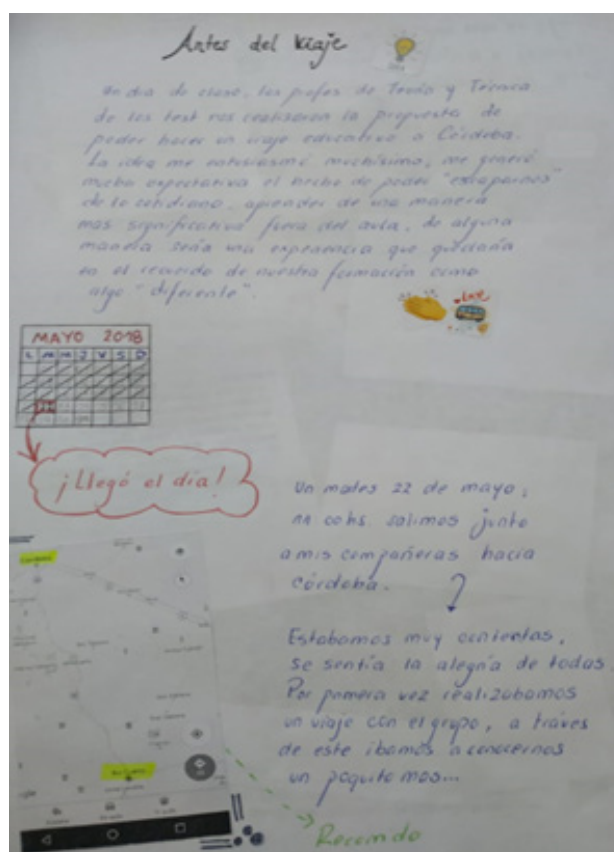 Antes del Viaje
Un dia de clase, los profes de Teoría y Técnica
de los test nos realizaron la propuesta de
poder hacer un viaje educativo a Córdoba.
La idea me entusiasmó muchísimo, me generó
mucha expectativa el hecho de poder "escaparnos"
de lo cotidiano, aprender de una manera
mas significativa fuera del aula, de alguna
manera sería una experiencia que quedaría
en el recuerdo de nuestra formación como
algo "diferente".
MAYO 2018
L M M J V S D
22
¡Llegó el día!
Un martes 22 de mayo,
salimos junto
a mis compañeras hacia
córdoba.
Estabamos muy contentas,
se sentía la alegría de todas.
Por primera vez realizabamos
un viaje con el grupo, a través
de este ibamos a conocernos
un poquito mas...
Recorrido